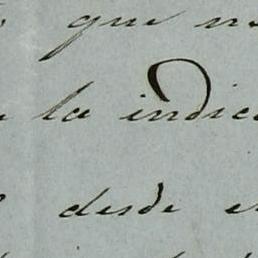 que
la indic
desde